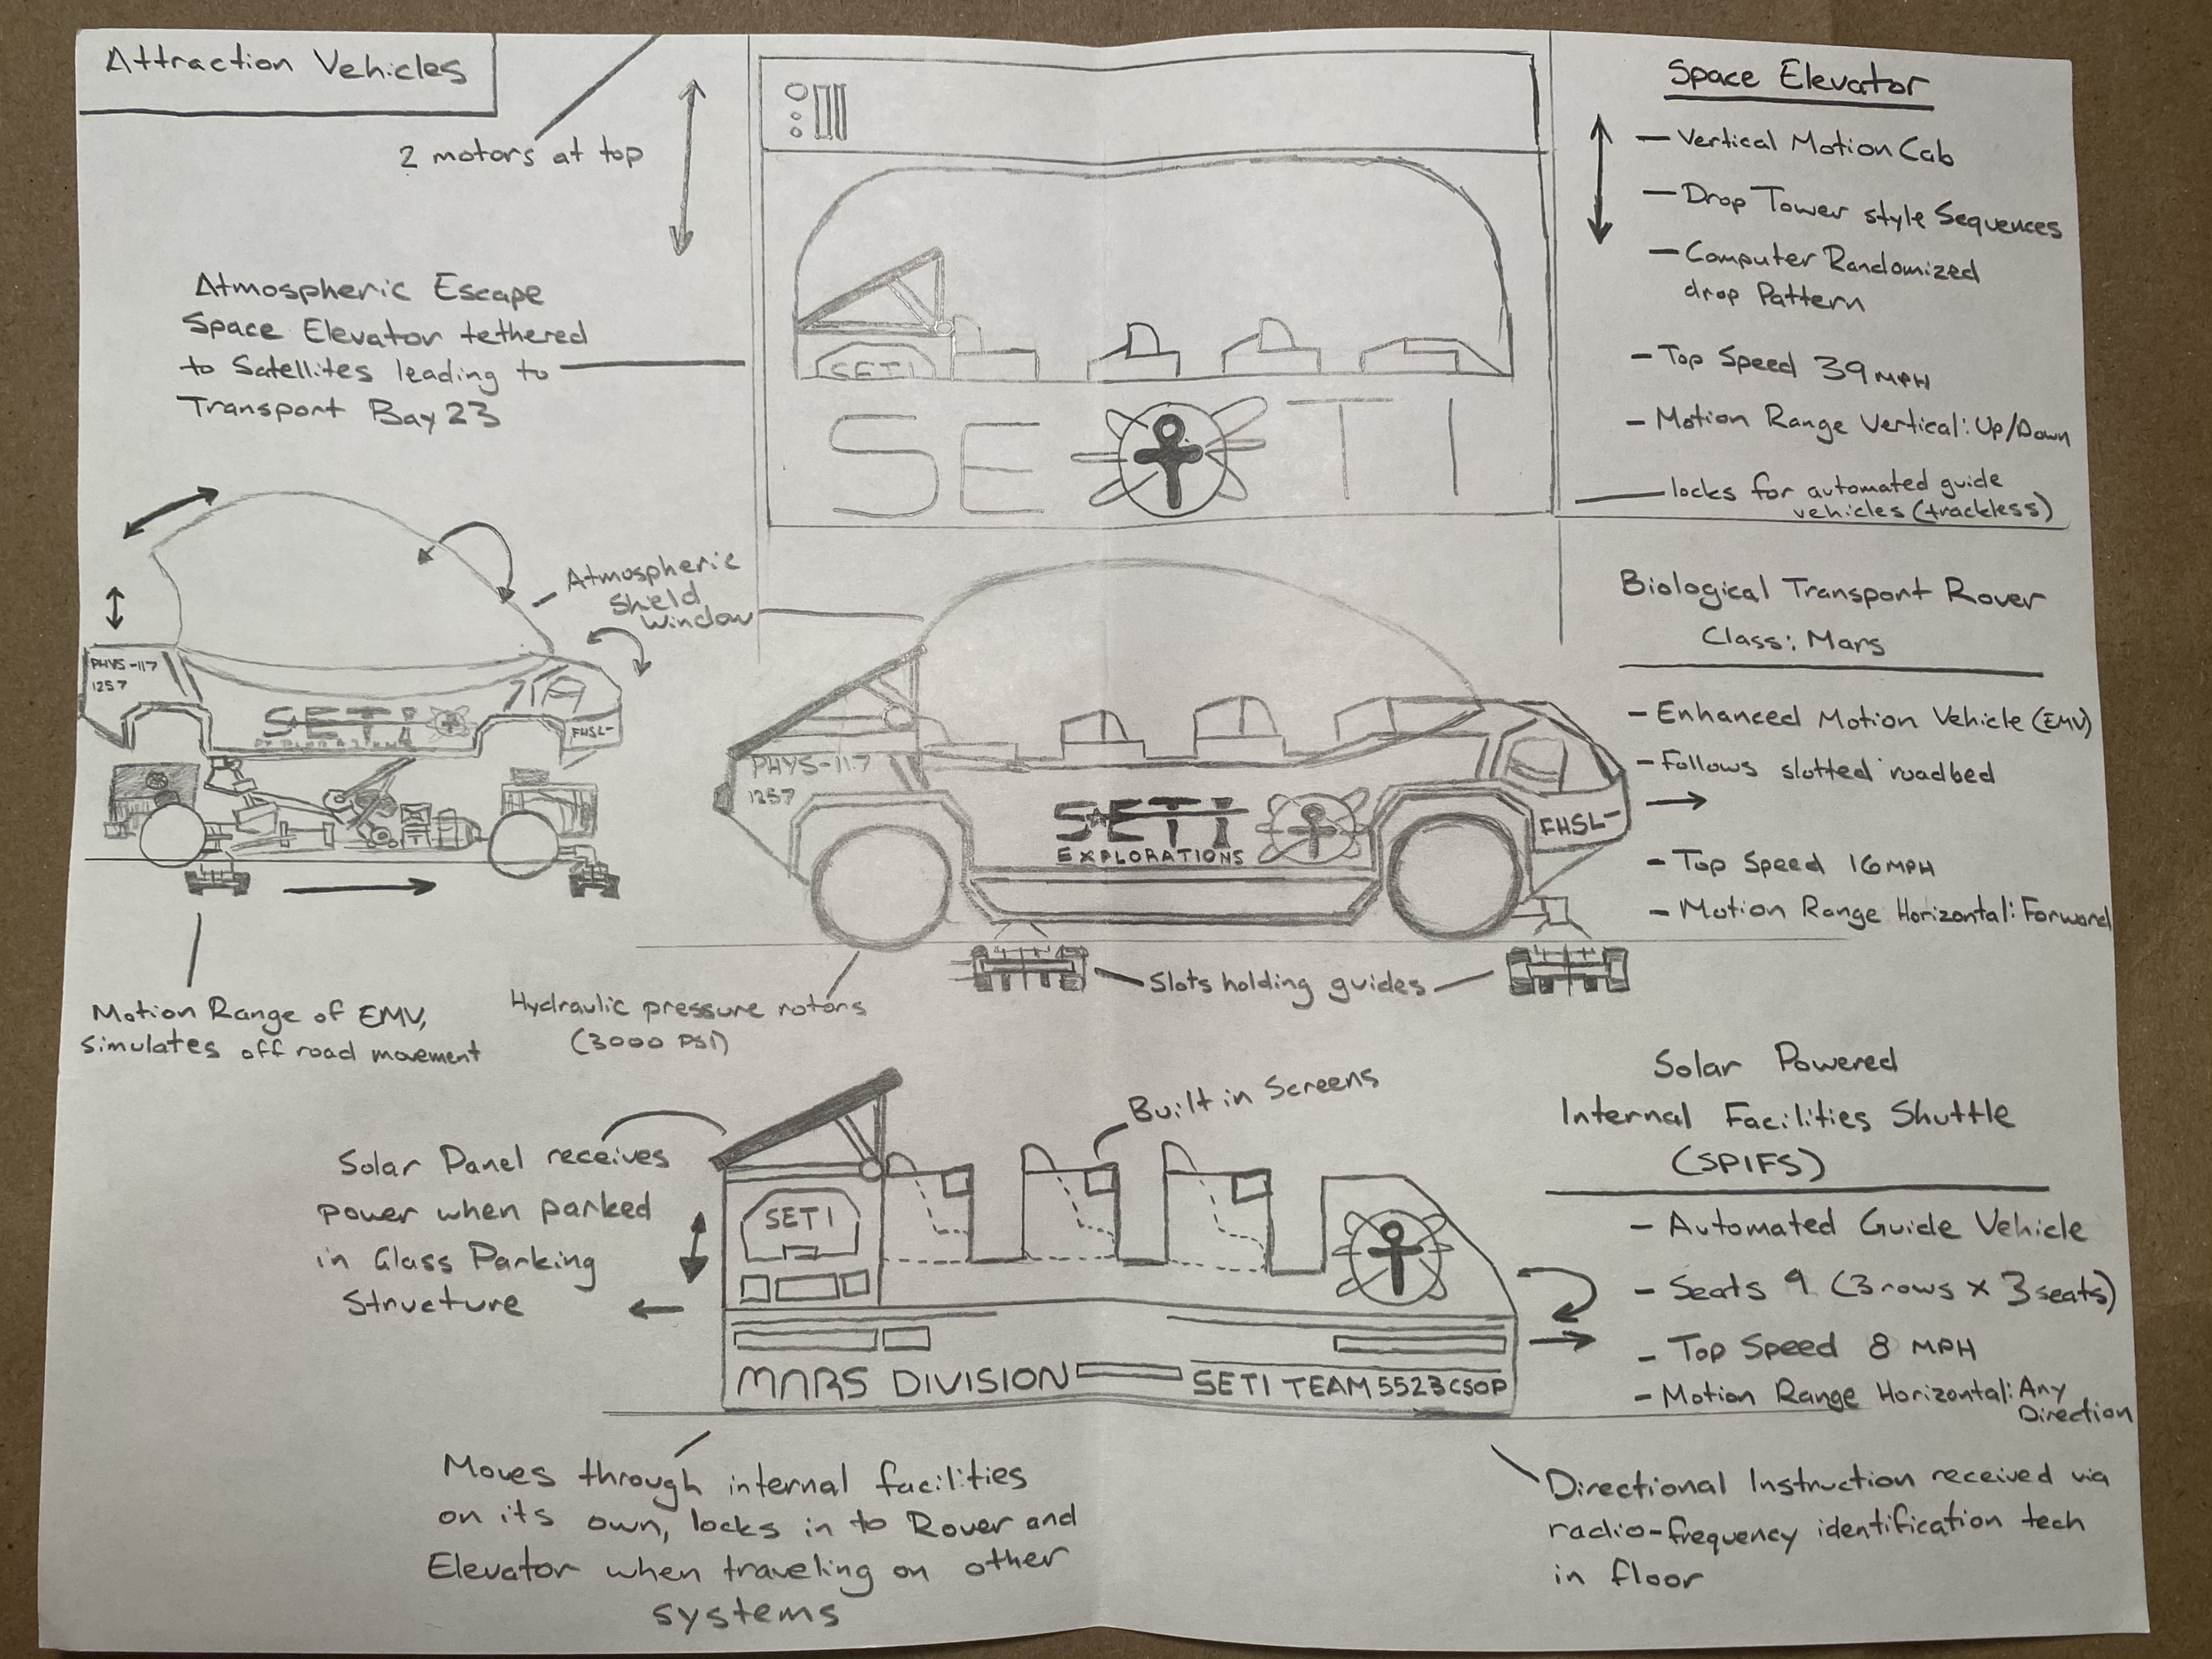 Attraction Vehicles
2 motors at top
Atmospheric Escape
Space Elevator tethered
to Satellites leading to
Transport Bay 23
SETI
SETI
Space Elevator
- Vertical Motion Cab
- Drop Tower style Sequences
- Computer Randomized
drop Pattern
- Top Speed 39 MPH
- Motion Range Vertical: Up/Down
locks for automated guide
vehicles (trackless)
Atmospheric
Shield
Window
PHYS-117
1257
SETI
FHSL-
Motion Range of EMV,
simulates off road movement
PHYS-117
1257
SETI
EXPLORATIONS
FHSL-
Hydraulic pressure rotors
(3000 PSI)
Slots holding guides
Biological Transport Rover
Class: Mars
- Enhanced Motion Vehicle (EMV)
- Follows slotted roadbed
- Top Speed 16 MPH
- Motion Range Horizontal: Forward
Solar Panel receives
power when parked
in Glass Parking
Structure
Built in Screens
SETI
MARS DIVISION
SETI TEAM 5523 CSOP
Solar Powered
Internal Facilities Shuttle
(SPIFS)
- Automated Guide Vehicle
- Seats 9 (3 rows x 3 seats)
- Top Speed 8 MPH
- Motion Range Horizontal: Any
Direction
Moves through internal facilities
on its own, locks in to Rover and
Elevator when traveling on other
systems
Directional Instruction received via
radio-frequency identification tech
in floor